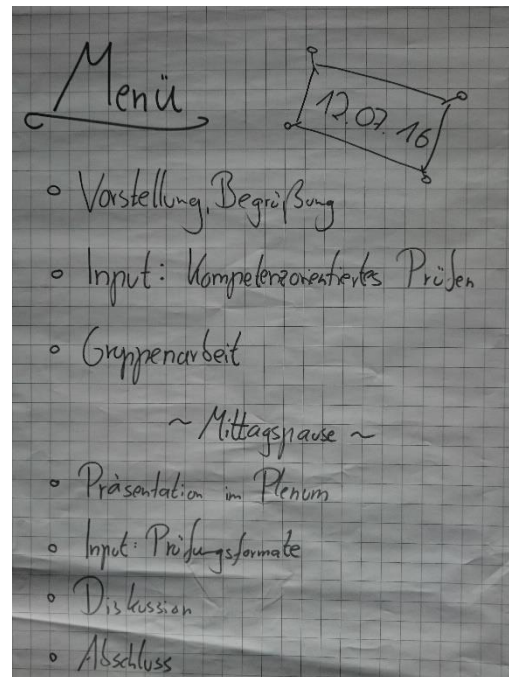 Menü
12.07.16
• Vorstellung, Begrüßung
• Input: Kompetenzorientiertes Prüfen
• Gruppenarbeit
~ Mittagspause ~
• Präsentation im Plenum
• Input: Prüfungsformate
• Diskussion
• Abschluss